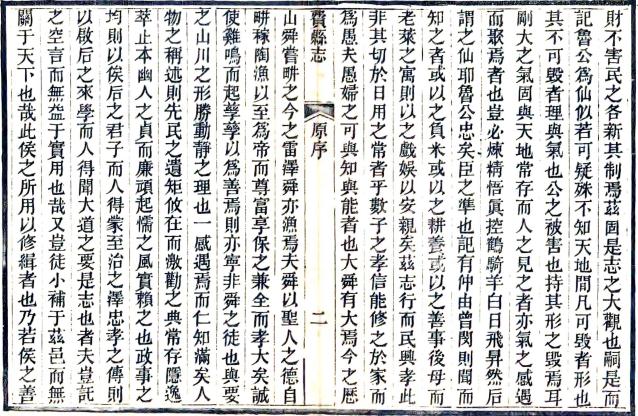 財不害民之各新其制焉茲固是志之大觀也嗣是而
記魯公為仙似若可疑殊不知天地間凡可毀者形也
其不可毀者理與氣也公之被害也持其形之毀焉耳
剛大之氣固與天地常存而人之見之者亦氣之感遇
而聚焉者也豈必煉精悟眞控鶴騎羊白日飛昇然後
謂之仙耶魯公忠矣臣之準也記有仲由曾閔則聞而
知之者或以之負米或以之耕養或以之善事後母而
老萊之寓則以之戲娛以安親矣茲志行而民興孝此
非其切於日用之常者乎數子之孝信能修之於家而
為愚夫愚婦之可與知與能者也大舜有大焉今之歷
費縣志
原序
二
山舜嘗畊之今之雷澤舜亦漁焉夫舜以聖人之德自
畊稼陶漁以至為帝而尊富享保之兼全而孝大矣誠
使雞鳴而起孳孳以為善焉則亦寧非舜之徒也與要
之山川之形勝動靜之理也一感遇焉而仁知滿矣人
物之稱述則先民之遺矩攸在而激勸之典常存隱逸
萃止本幽人之貞而廉頑起懦之風實賴之也政事之
均則以俟后之君子而人得蒙至治之澤忠孝之傳則
以啟后之來學而人得聞大道之要是志也者夫豈託
之空言而無益于實用也哉又豈徒小補于茲邑而無
關于天下也哉此侯之所用以修緝者也乃若侯之善